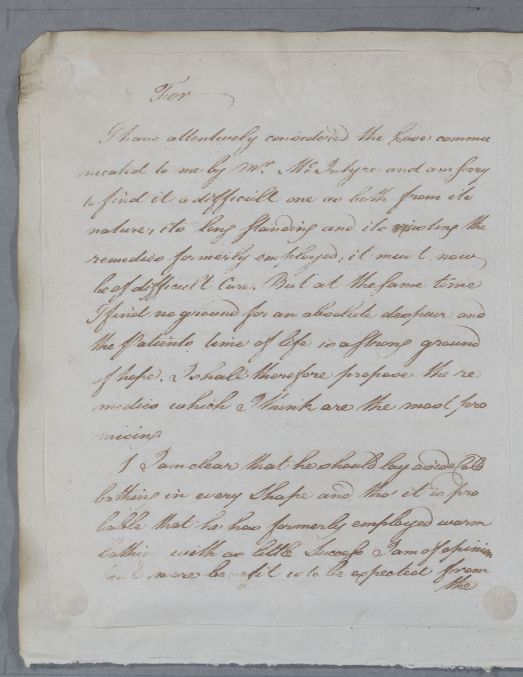 For
I have attentively considered the Case commu
nicated to me by Mr. McIntyre and am sorry
to find it a difficult one as both from its
nature, its long standing and its resisting the
remedies formerly employed, it must now
be of difficult Cure. But at the same time
I find no ground for an absolute despair and
the Patients time of life is a strong ground
of hope. I shall therefore propose the re
medies which I think are the most pro
mising
1 I am clear that he should lay aside Cold
bathing in every Shape and tho' it is pro
bable that he has formerly employed warm
bathing with as little Success I am of opinion
more benefit is to be expected from
the